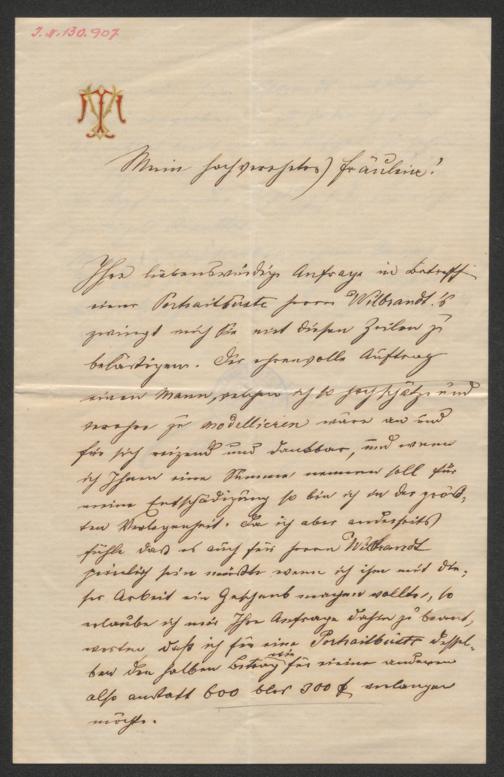 J.N. 130.907
Mein hochverehrtes Fräulein!
Ihre liebenswürdige Anfrage in Betreff
einer Portraitbüste Herrn Wilbrandt's
zwingt mich Sie mit diesen Zeilen zu
belästigen. Der ehrenvolle Auftrag
einen Mann, welchen ich so hochschätze und
verehre zu modellieren wäre an und
für sich reizend und dankbar, und wenn
ich Ihnen eine Summe nennen soll für
meine Entschädigung so bin ich in der größ-
ten Verlegenheit. Da ich aber anderseits
fühle daß es auch für Herrn Wilbrandt
peinlich sein müßte wenn ich ihm mit die-
ser Arbeit ein Geschenk machen wollte, so
erlaube ich mir Ihre Anfrage dahin zu beant-
worten, daß ich für eine Portraitbüste dessel-
ben den halben Betrag wie für meine anderen
also anstatt 600 blos 300 f verlangen
möchte.